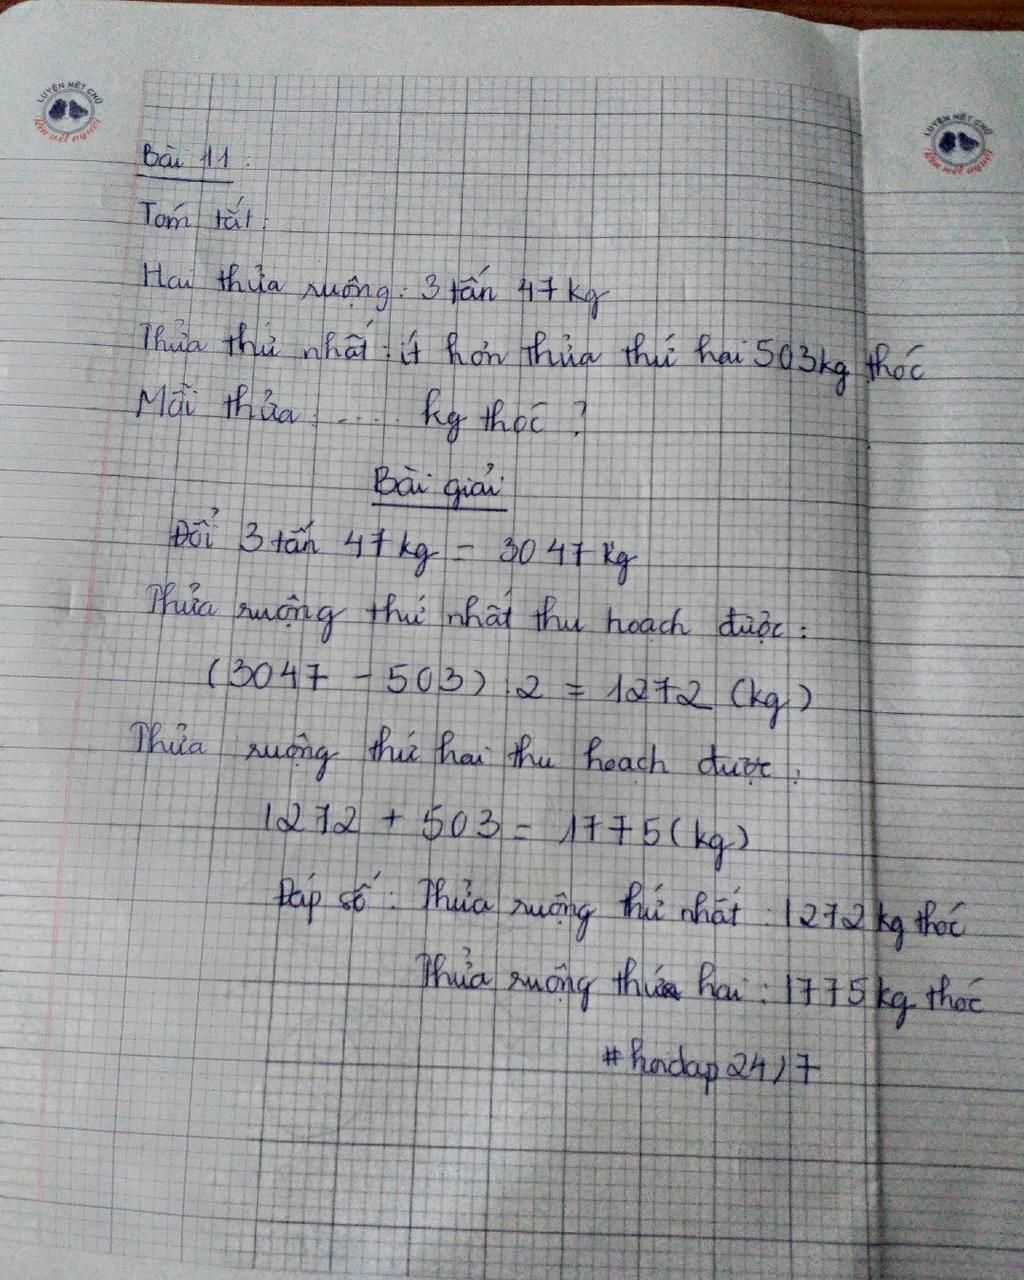 LUYỆN NÉT CHỮ
Rèn nết người
LUYỆN NÉT CHỮ
Rèn nết người
Bài 11:
Tóm tắt:
Hai thửa ruộng: 3 tấn 47 kg
Thửa thứ nhất: ít hơn thửa thứ hai 503kg thóc
Mỗi thửa: ..... kg thóc?
Bài giải
Đổi 3 tấn 47 kg = 3047 kg
Thửa ruộng thứ nhất thu hoạch được:
(3047 - 503) : 2 = 1272 (kg)
Thửa ruộng thứ hai thu hoạch được:
1272 + 503 = 1775 (kg)
Đáp số: Thửa ruộng thứ nhất: 1272 kg thóc
Thửa ruộng thứ hai: 1775 kg thóc
#hoidap24/7